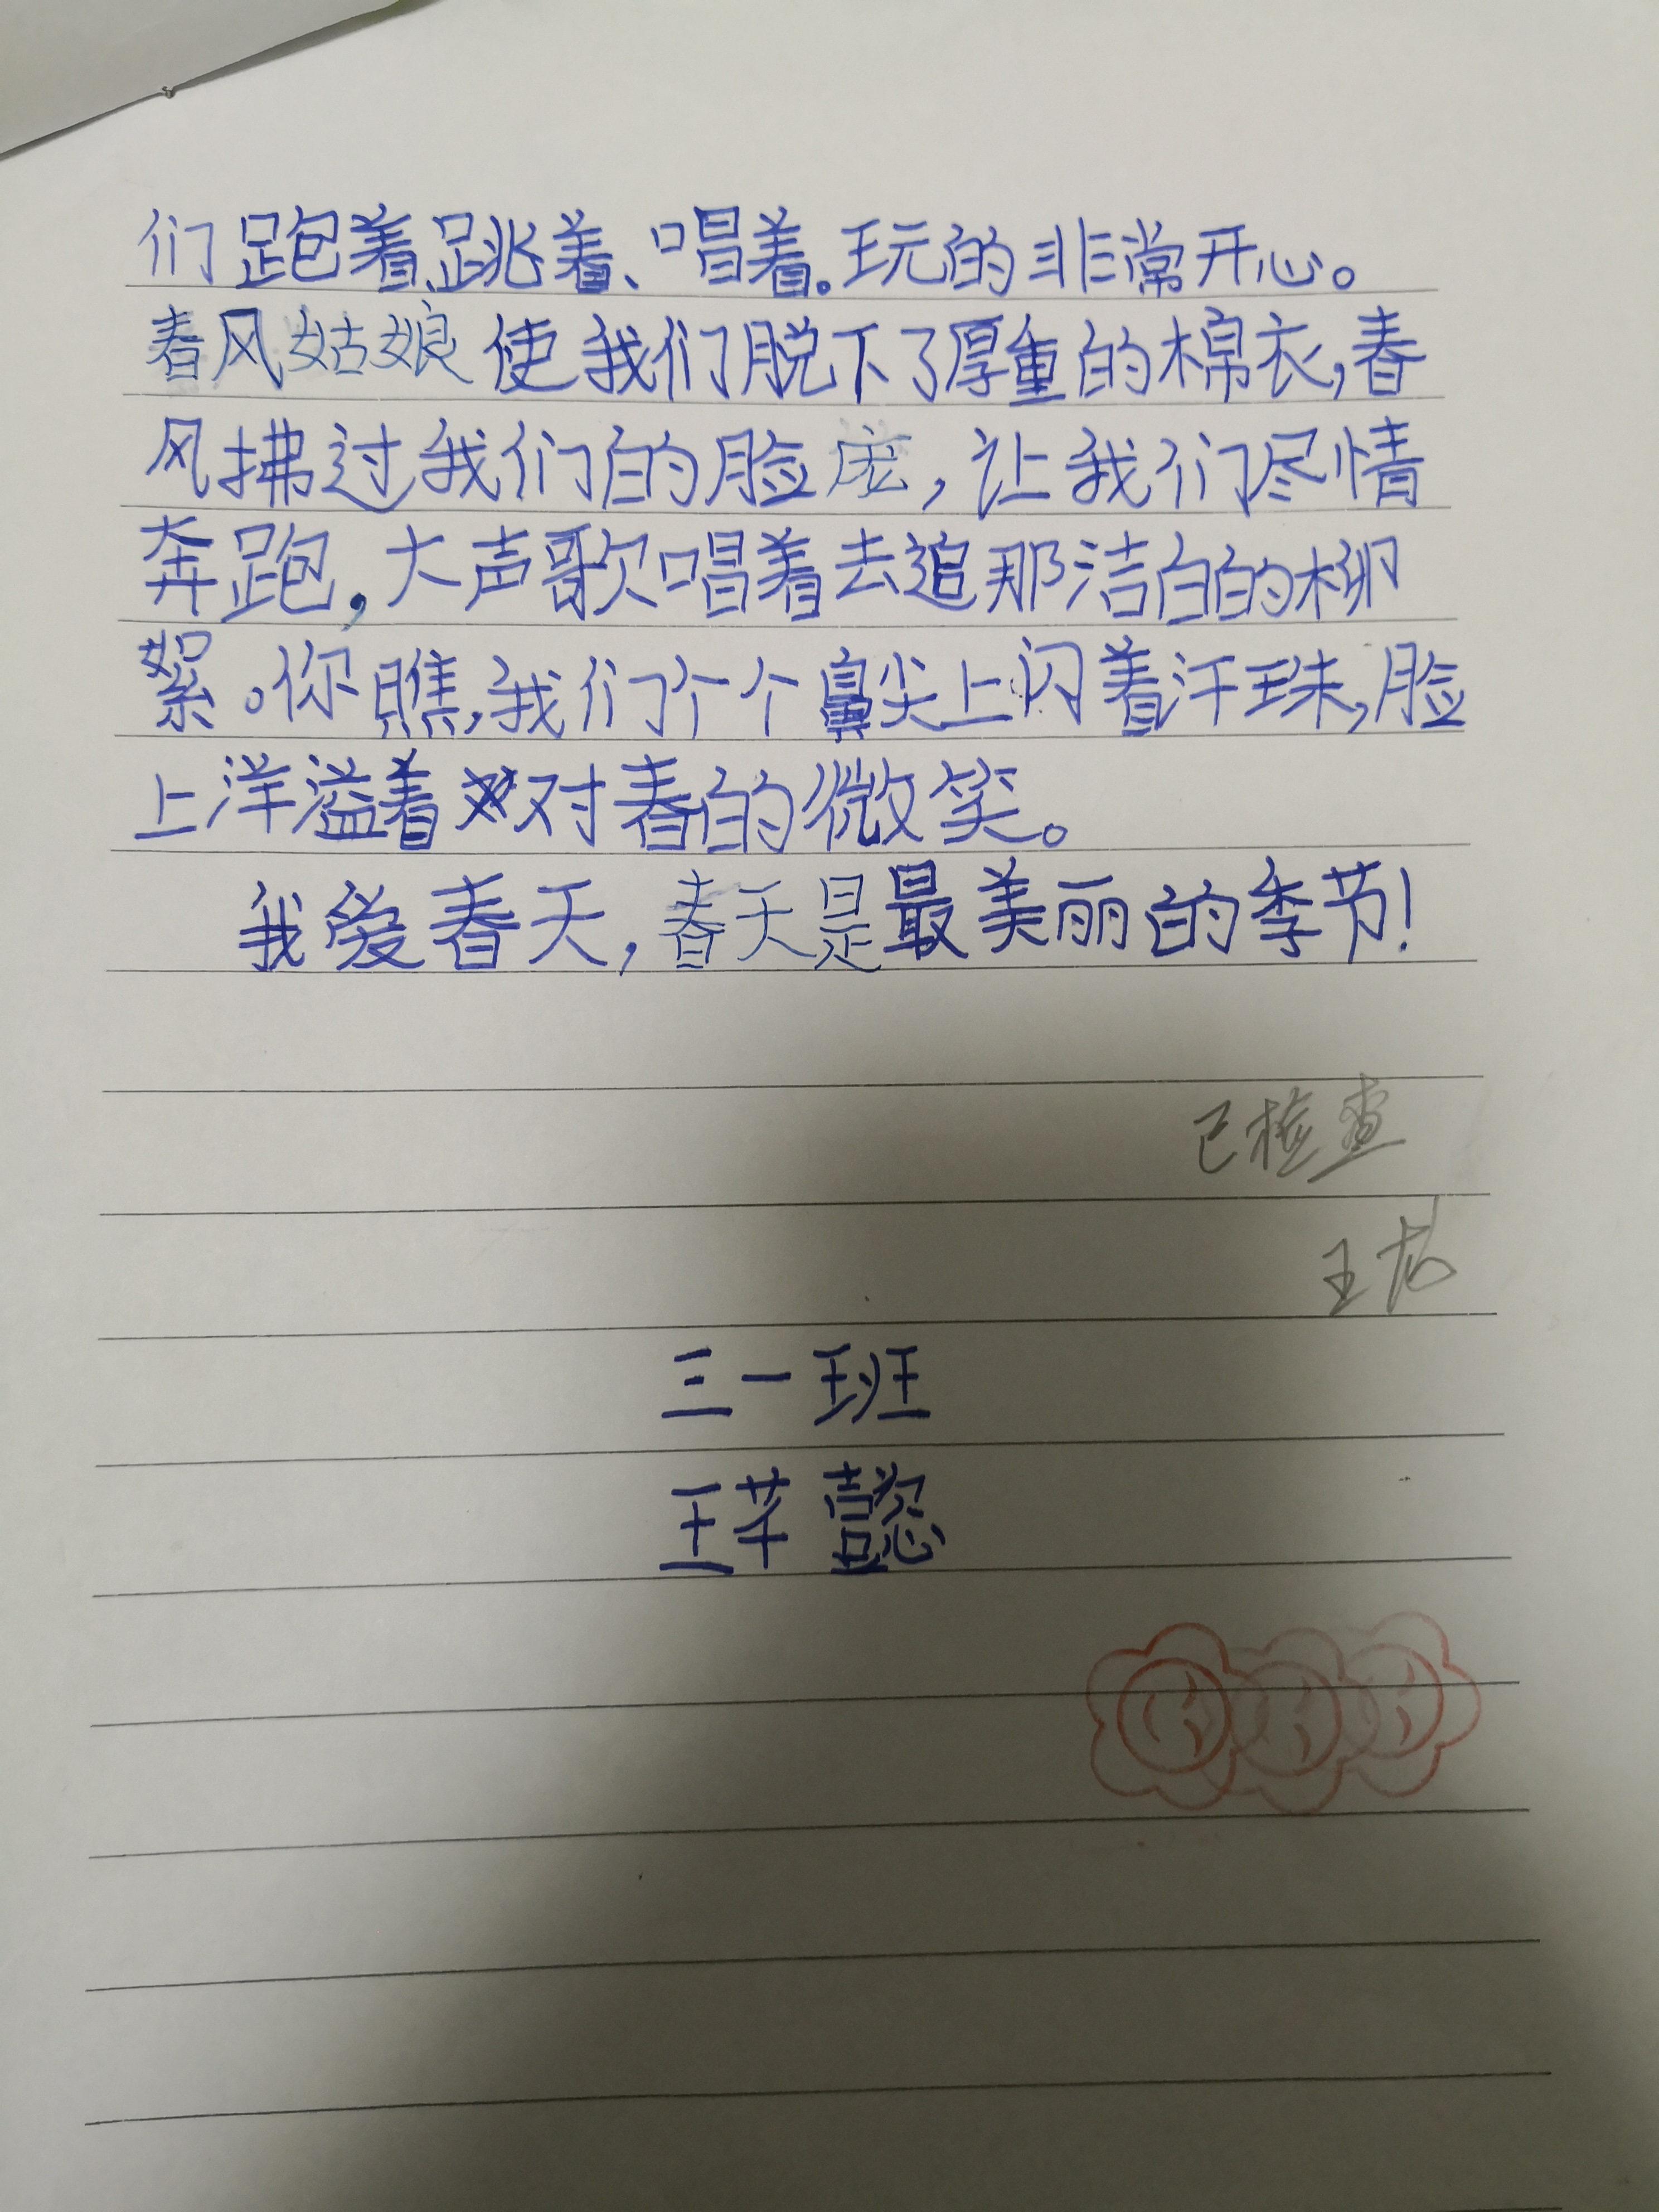 们跑着、跳着、唱着。玩的非常开心。
春风姑娘使我们脱下了厚重的棉衣,春
风拂过我们的脸庞,让我们尽情
奔跑,大声歌唱着去追那洁白的柳
絮。你瞧,我们个个鼻尖上闪着汗珠,脸
上洋溢着对春的微笑。
我爱春天,春天是最美丽的季节!
已检查
三一班
王芊懿